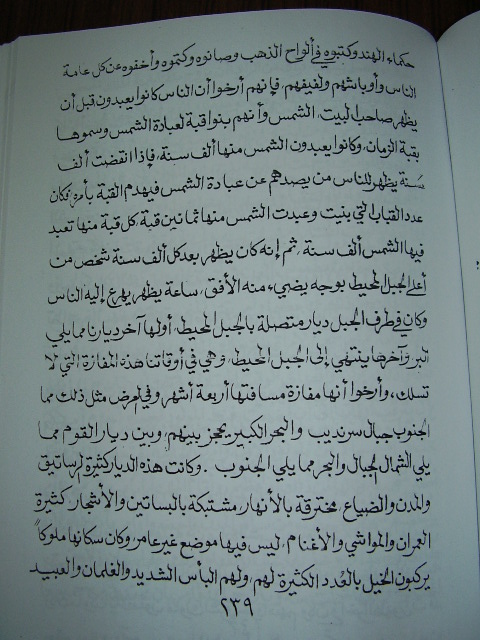 حكماء الهند وكتبوه في ألواح الذهب وصانوه وكتموه وأخفوه عن كل عامة
الناس وأوباشهم ولفيفهم، فإنهم أرخوا أن الناس كانوا يعبدون قبل أن
يظهر صاحب البيت، الشمس وأنهم بنوا قبة لعبادة الشمس وسموها
بقبة الزمان، وكانوا يعبدون الشمس منها ألف سنة، فإذا انقضت ألف
سنة يظهر للناس من يصدهم عن عبادة الشمس فيهدم القبة بأمره فكان
عدد القباب التي بنيت وعبدت الشمس منها ثمانين قبة، كل قبة منها تعبد
فيها الشمس ألف سنة، ثم إنه كان يظهر بعد كل ألف سنة شخص من
أعلى الجبل المحيط بوجه يضيء منه الأفق، ساعة يظهر يهرع إليه الناس
وكان في طرف الجبل ديار متصلة بالجبل المحيط، أولها آخر ديارنا مما يلي
البر وآخرها ينتهي إلى الجبل المحيط، وهي في أوقاتنا هذه المفازة التي لا
تسلك، وأرخوا أنها مفازة مسافتها أربعة أشهر وفي العرض مثل ذلك مما
الجنوب جبال سرنديب والبحر الكبير يحجز بينهم، وبين ديار القوم مما
يلي الشمال الجبال والبحر مما يلي الجنوب. وكانت هذه الديار كثيرة الرساتيق
والمدن والضياع، مخترقة بالأنهار، مشتبكة بالبساتين والأشجار، كثيرة
العمران والمواشي والأغنام، ليس فيها موضع غير عامر وكان سكانها ملوكاً
يركبون الخيل بالعُدد الكثيرة لهم، ولهم البأس الشديد والغلمان والعبيد
٢٣٩